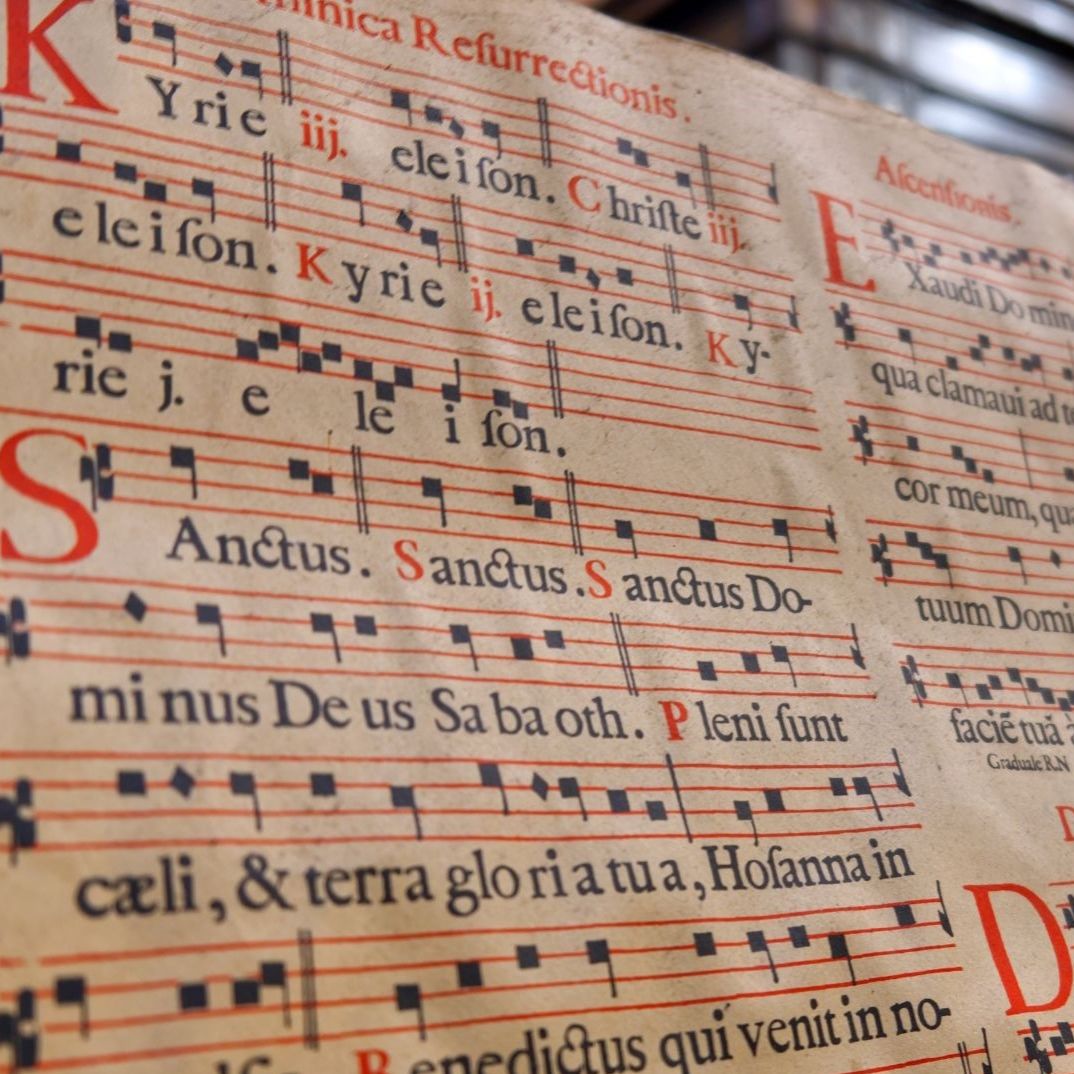 Reſurrectionis.
KYrie iij. eleiſon. Chriſte iij.
eleiſon. Kyrie ij. eleiſon. Ky-
rie j. e le i ſon.
SAnctus. Sanctus. Sanctus Do-
minus Deus Sabaoth. Pleni ſunt
cæli, & terra gloria tua, Hoſanna in
Benedictus qui venit in no-
Aſcenſionis.
EXaudi Domin
qua clamaui ad te
cor meum, qua
tuum Domi
faciē tuā
Graduale R.N
D